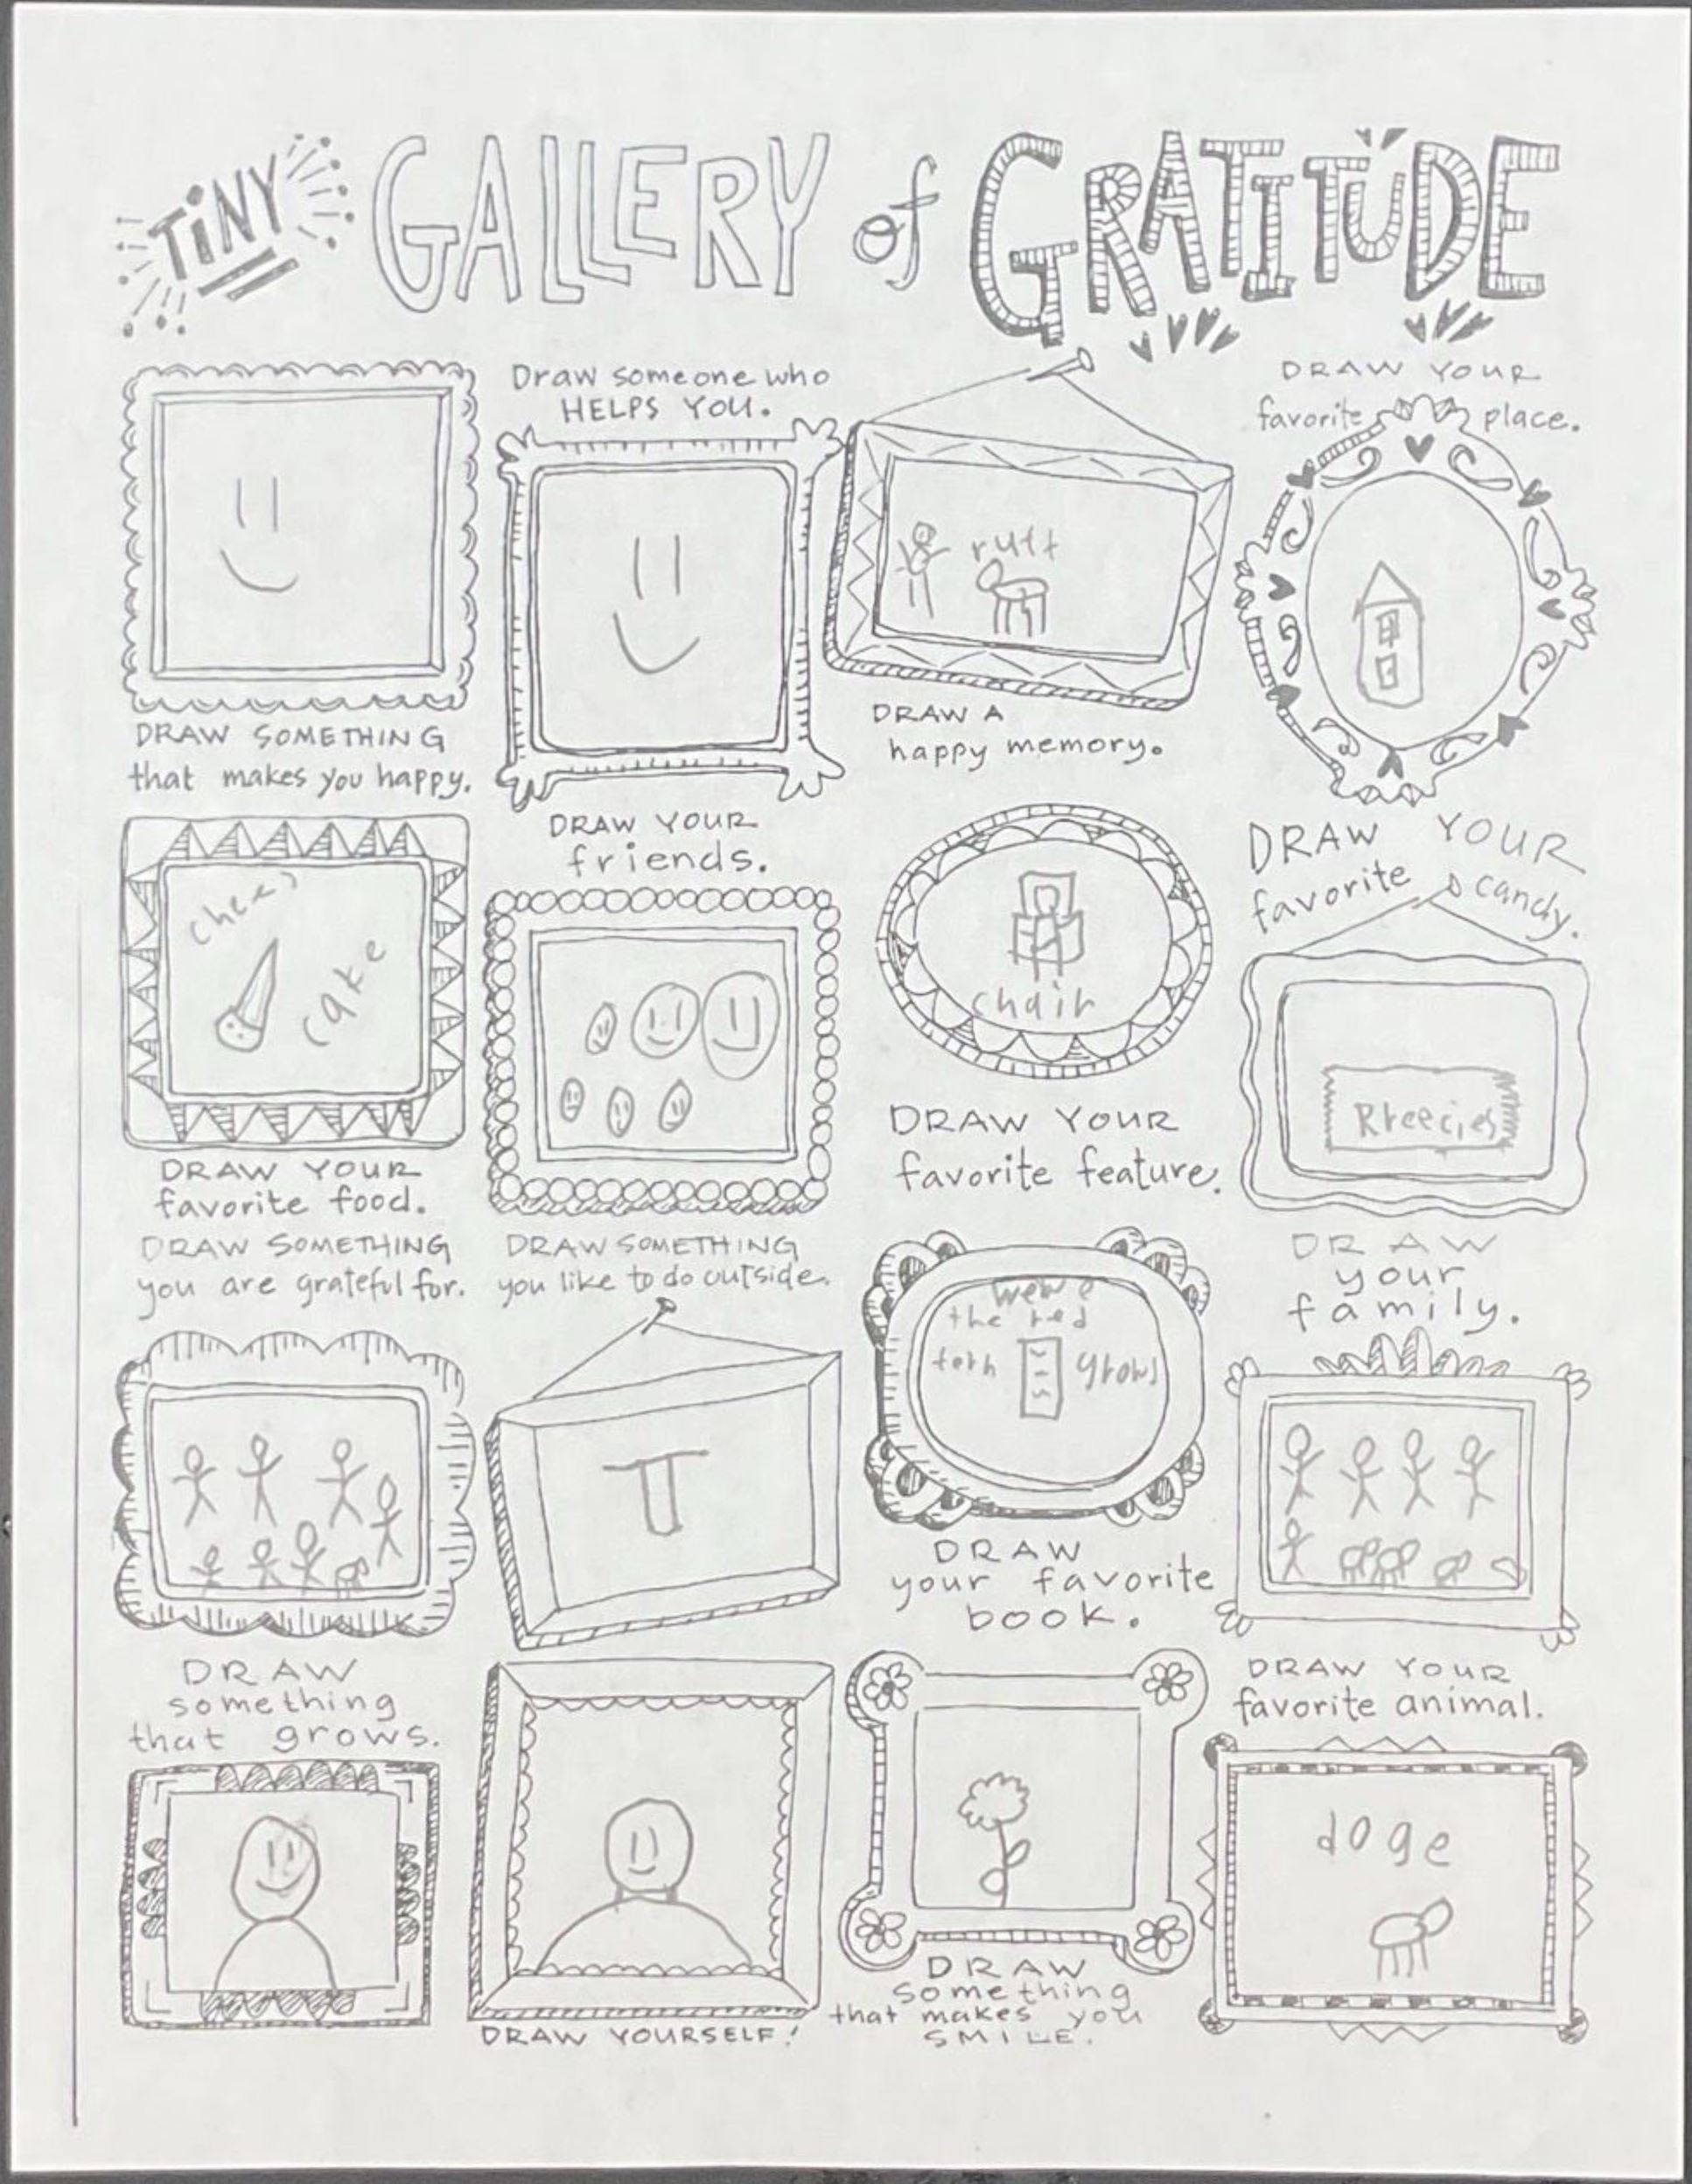 TiNY GALLERY of GRATITUDE
Draw someone who
HELPS YOU.
DRAW YOUR
favorite place.
rutt
DRAW SOMETHING
that makes you happy.
DRAW A
happy memory.
DRAW YOUR
friends.
DRAW YOUR
favorite candy.
chees
cake
chair
Rreecies
DRAW YOUR
favorite food.
DRAW YOUR
favorite feature.
DRAW SOMETHING
you are grateful for.
DRAW SOMETHING
you like to do outside.
DRAW
your
family.
the red
grows
DRAW
your favorite
book.
DRAW
something
that grows.
DRAW YOUR
favorite animal.
doge
DRAW YOURSELF!
DRAW
something
that makes you
SMILE.